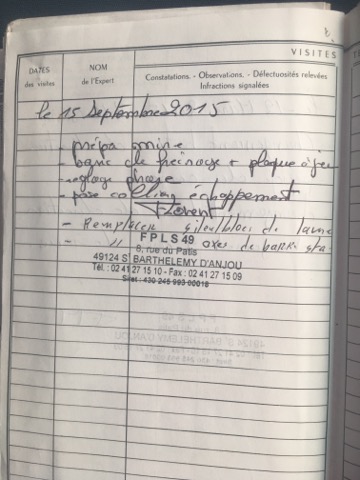 VISITES
DATES
des visites
NOM
de l'Expert
Constatations. - Observations. - Défectuosités relevées
Infractions signalées
le 15 Septembre 2015
- prépa mine
- banc de freinage + plaque à jeu
- réglage phare
- pose collier échappement
Florent
- Remplacer silentblocs de lame
- " " axes de barre sta
FPLS 49
8, rue du Patis
49124 St BARTHELEMY D'ANJOU
Tél. : 02 41 27 15 10 - Fax : 02 41 27 15 09
Siret : 430 245 993 00018